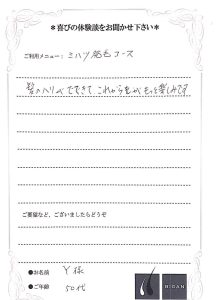 ＊喜びの体験談をお聞かせ下さい＊
ご利用メニュー：ミハツ脱毛コース
髪のハリがでてきて これからも もっと楽しみです
ご要望など、ございましたらどうぞ
●お名前 Y様
●ご年齢 50代
BIGAN